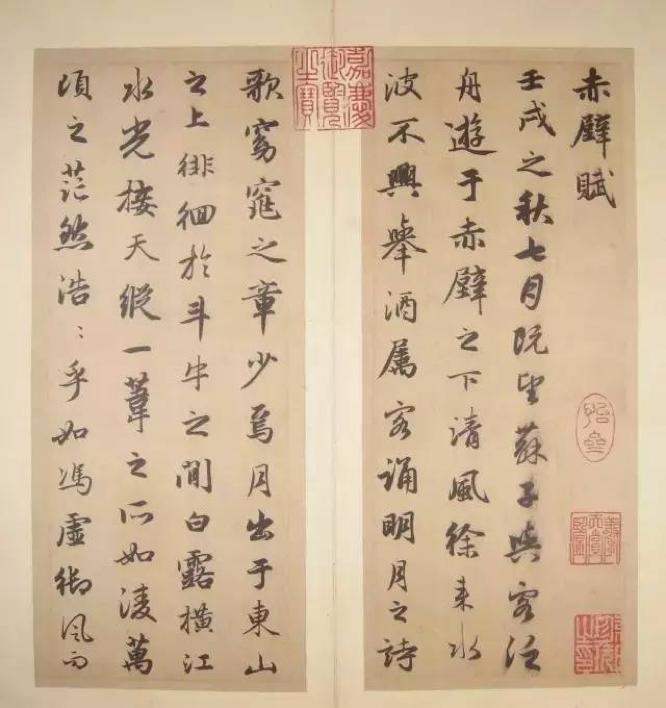 赤壁賦
壬戌之秋七月既望蘇子與客泛
舟遊于赤壁之下清風徐来水
波不興舉酒屬客誦明月之詩
歌窈窕之章少焉月出于東山
之上徘徊於斗牛之間白露橫江
水光接天縱一葦之所如淩萬
頃之茫然浩〻乎如馮虛御風而
嘉慶御覽之寶